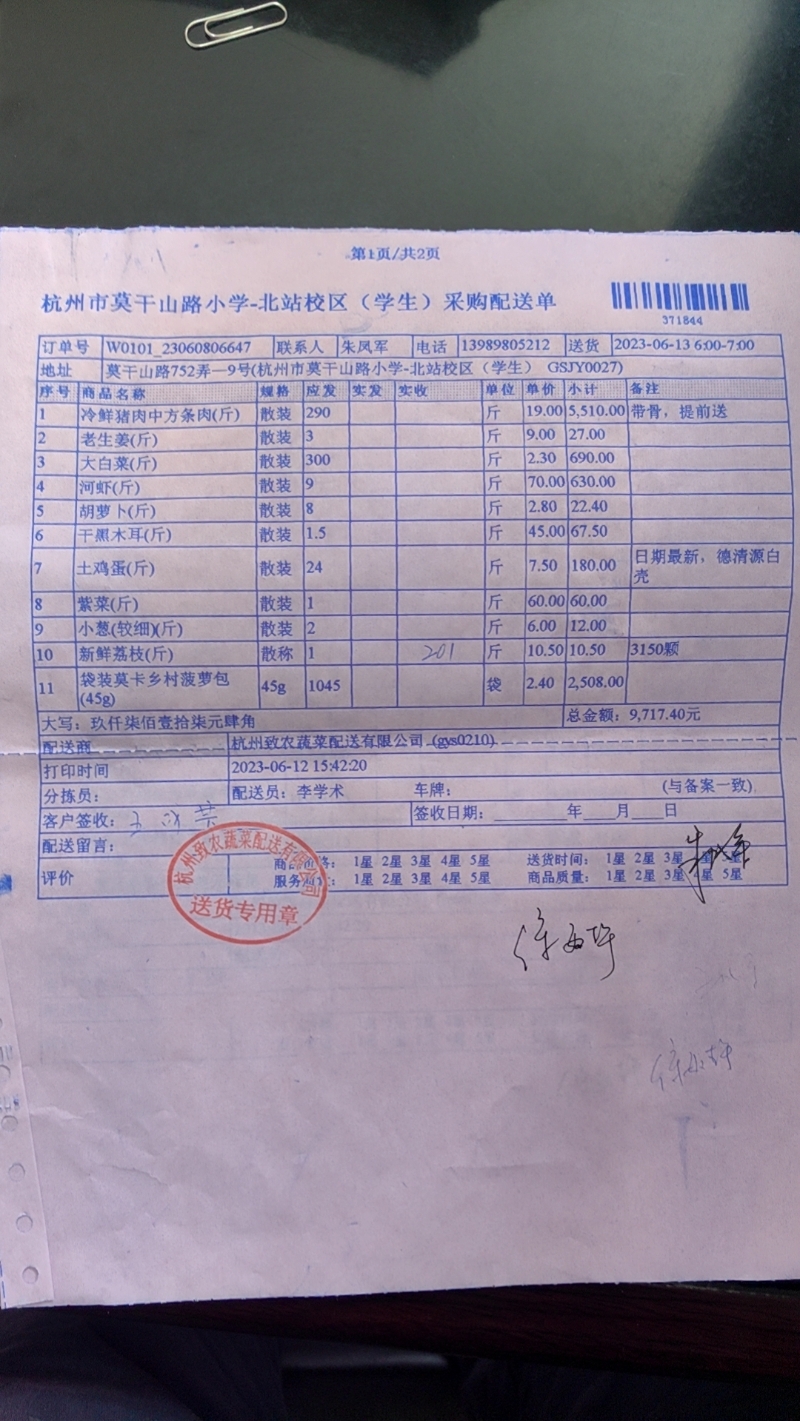 第1页/共2页
杭州市莫干山路小学-北站校区（学生）采购配送单
371844
订单号 W0101_23060806647 联系人 朱凤军 电话 13989805212 送货 2023-06-13 6:00-7:00
地址 莫干山路752弄一9号(杭州市莫干山路小学-北站校区（学生） GSJY0027)
序号 商品名称 规格 应发 实发 实收 单位 单价 小计 备注
1 冷鲜猪肉中方条肉(斤) 散装 290 斤 19.00 5,510.00 带骨，提前送
2 老生姜(斤) 散装 3 斤 9.00 27.00
3 大白菜(斤) 散装 300 斤 2.30 690.00
4 河虾(斤) 散装 9 斤 70.00 630.00
5 胡萝卜(斤) 散装 8 斤 2.80 22.40
6 干黑木耳(斤) 散装 1.5 斤 45.00 67.50
7 土鸡蛋(斤) 散装 24 斤 7.50 180.00 日期最新，德清源白
壳
8 紫菜(斤) 散装 1 斤 60.00 60.00
9 小葱(较细)(斤) 散装 2 斤 6.00 12.00
10 新鲜荔枝(斤) 散称 1 201 斤 10.50 10.50 3150颗
11 袋装莫卡乡村菠萝包 45g 1045 袋 2.40 2,508.00
(45g)
大写：玖仟柒佰壹拾柒元肆角 总金额：9,717.40元
配送商 杭州致农蔬菜配送有限公司 (gys0210)
打印时间 2023-06-12 15:42:20
分拣员： 配送员：李学术 车牌： (与备案一致)
客户签收： 签收日期：________年____月____日
配送留言：
评价 商品价格： 1星 2星 3星 4星 5星 送货时间： 1星 2星 3星 4星 5星
服务态度： 1星 2星 3星 4星 5星 商品质量： 1星 2星 3星 4星 5星
杭州致农蔬菜配送有限公司
送货专用章